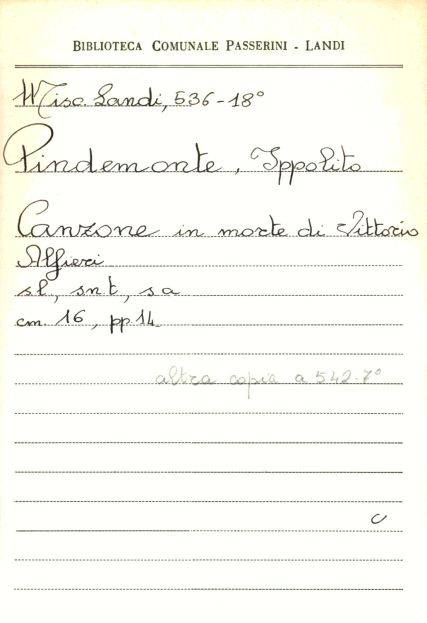 BIBLIOTECA COMUNALE PASSERINI - LANDI
Misc. Landi, 536-18°
Pindemonte, Ippolito
Canzone in morte di Vittorio
Alfieri
s.l., s.n.t., s.a
cm. 16, pp. 14
altra copia a 542-7°
c